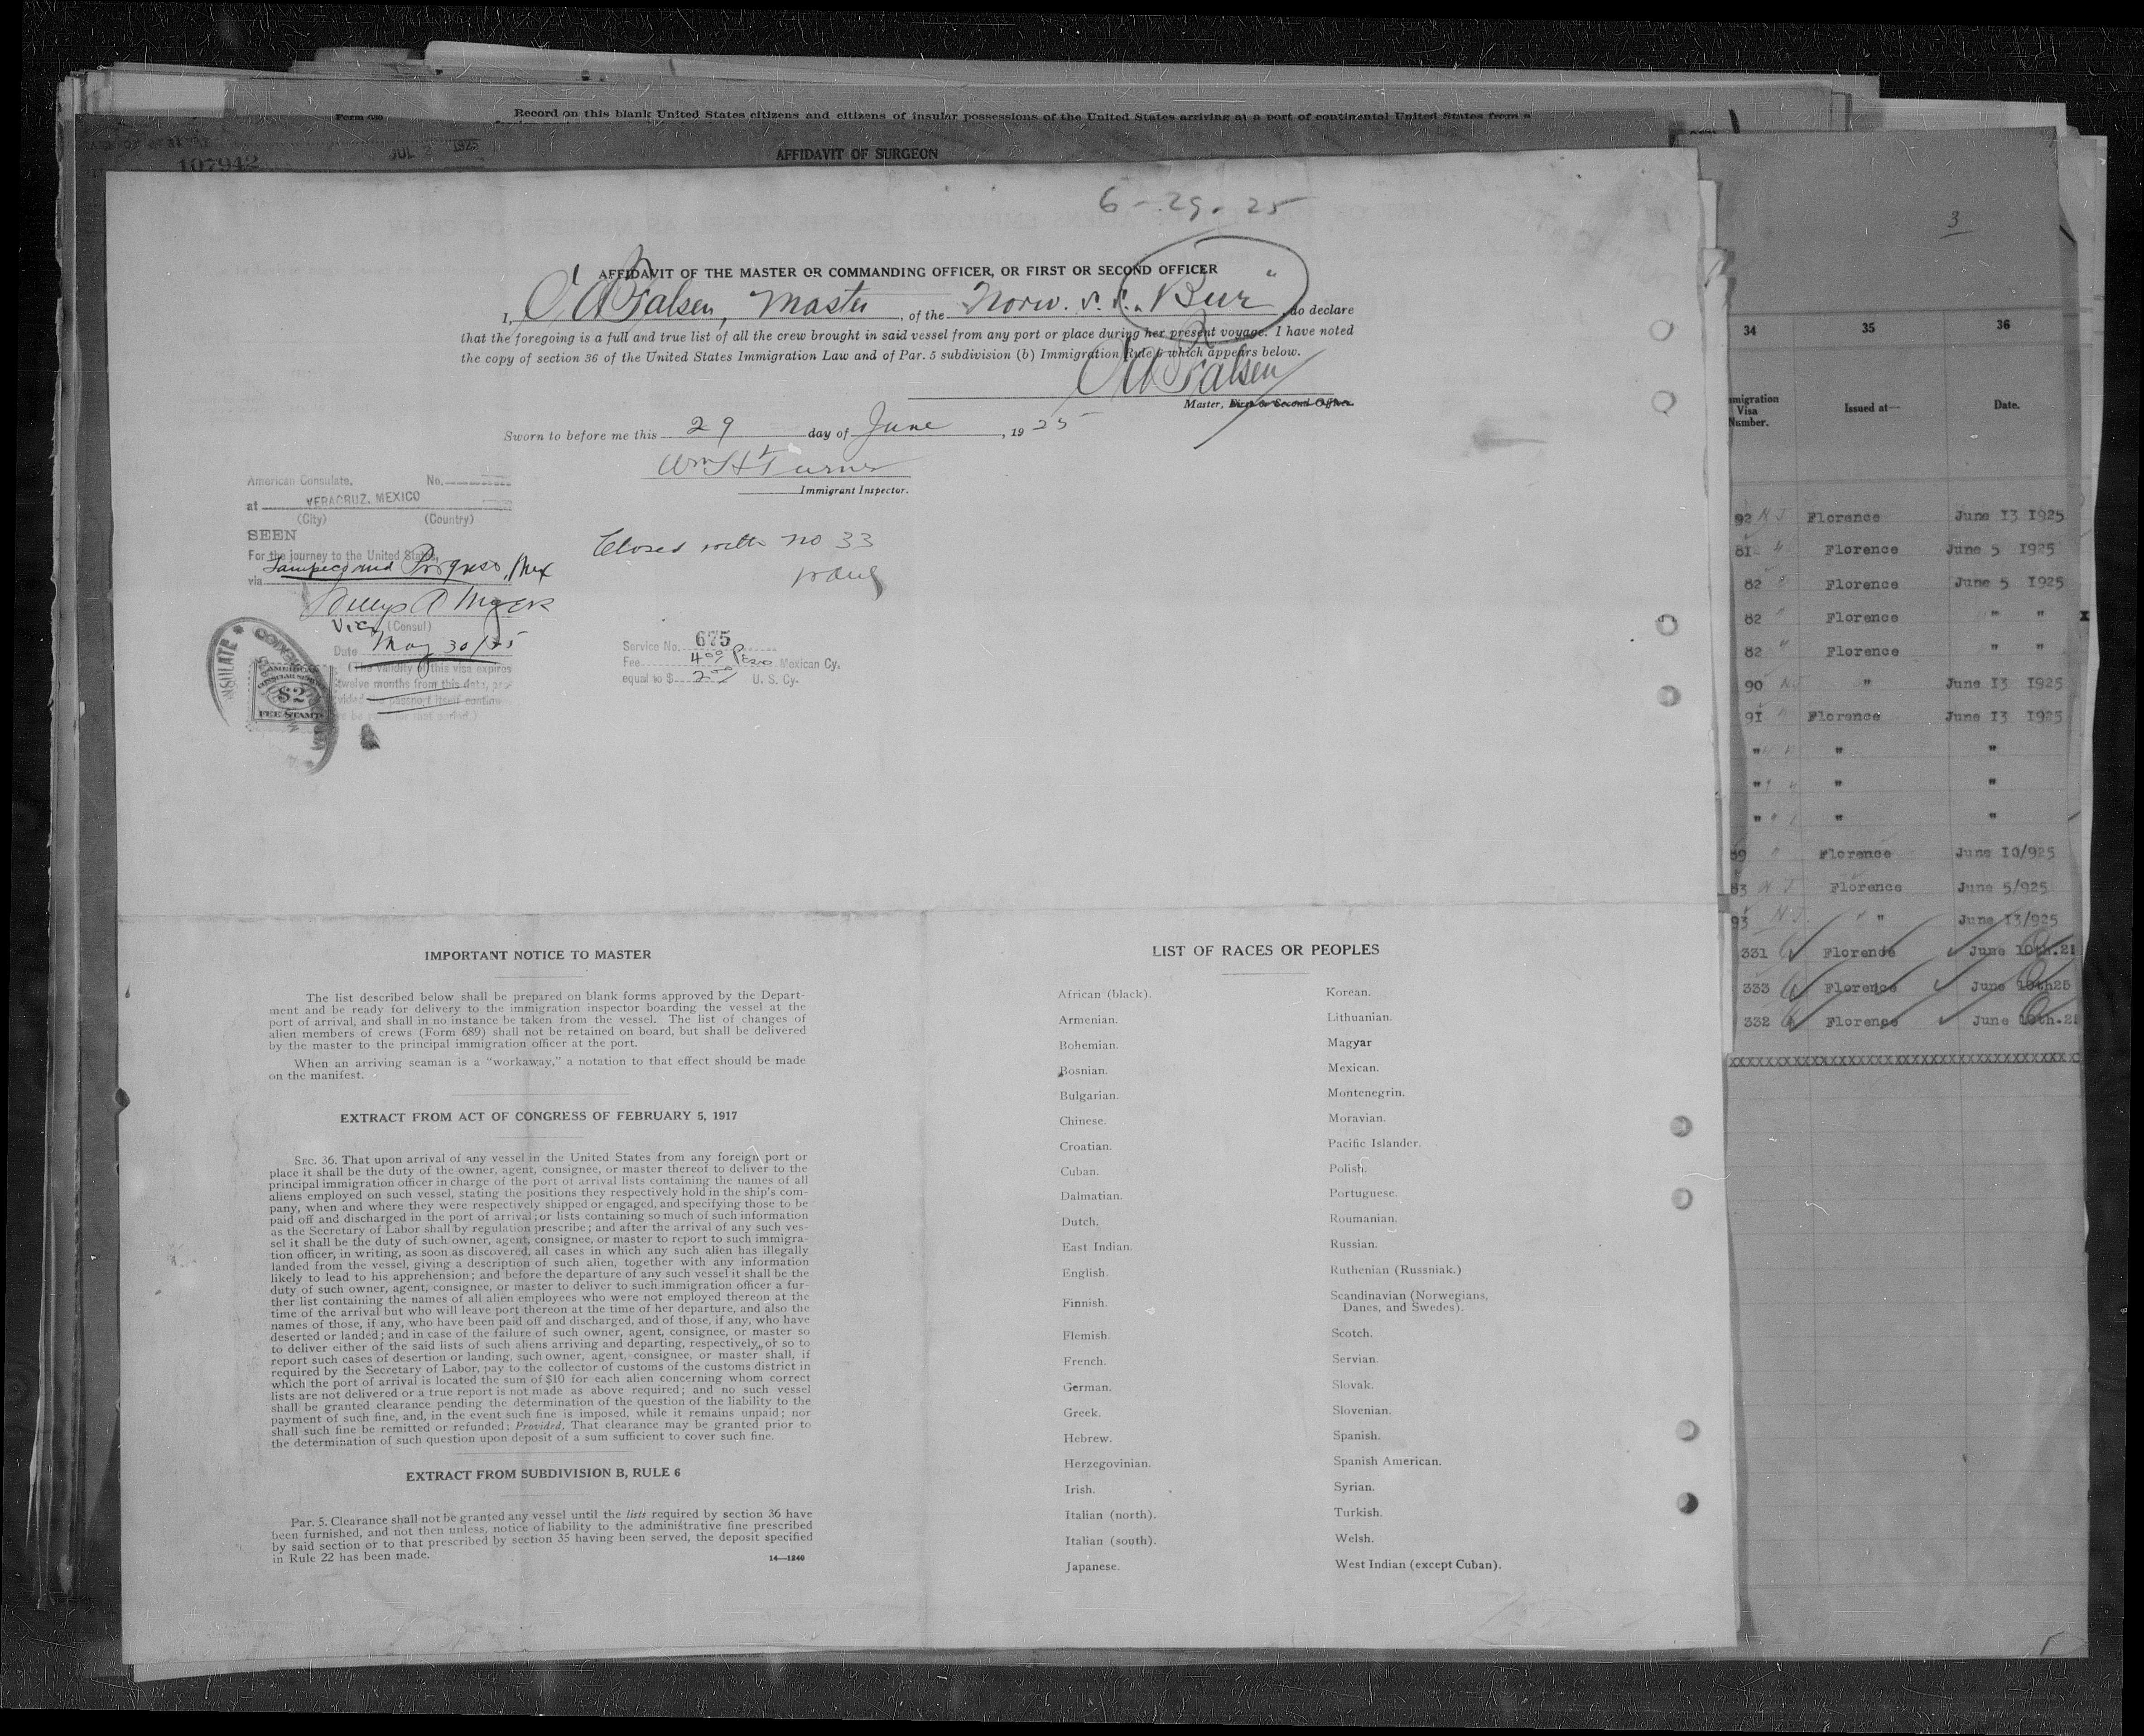 Form 630
Record on this blank United States citizens and citizens of insular possessions of the United States arriving at a port of continental United States from a
107942
JUL 2 1925
AFFIDAVIT OF SURGEON
6-29-25
AFFIDAVIT OF THE MASTER OR COMMANDING OFFICER, OR FIRST OR SECOND OFFICER
I, Falsen, Master, of the Norw. s.s. "Bur", do declare
that the foregoing is a full and true list of all the crew brought in said vessel from any port or place during her present voyage. I have noted
the copy of section 36 of the United States Immigration Law and of Par. 5 subdivision (b) Immigration Rule 6 which appears below.
Falsen
Master, First or Second Officer.
Sworn to before me this 29 day of June, 1925
Wm H Turner
Immigrant Inspector.
American Consulate. No.
at VERACRUZ, MEXICO
(City) (Country)
SEEN
For the journey to the United States,
via Tampico and Progreso, Mex
Myers
Vice (Consul)
Date May 30/25
(The validity of this visa expires
twelve months from this date, pro-
vided the passport itself continues
CONSULATE
AMERICAN
CONSULAR SERVICE
$2
FEE STAMP
Closed with no 33
Service No. 675
Fee 4.00 Peso Mexican Cy.
equal to $ 2.00 U. S. Cy.
IMPORTANT NOTICE TO MASTER
The list described below shall be prepared on blank forms approved by the Depart-
ment and be ready for delivery to the immigration inspector boarding the vessel at the
port of arrival, and shall in no instance be taken from the vessel. The list of changes of
alien members of crews (Form 689) shall not be retained on board, but shall be delivered
by the master to the principal immigration officer at the port.
When an arriving seaman is a "workaway," a notation to that effect should be made
on the manifest.
EXTRACT FROM ACT OF CONGRESS OF FEBRUARY 5, 1917
SEC. 36. That upon arrival of any vessel in the United States from any foreign port or
place it shall be the duty of the owner, agent, consignee, or master thereof to deliver to the
principal immigration officer in charge of the port of arrival lists containing the names of all
aliens employed on such vessel, stating the positions they respectively hold in the ship's com-
pany, when and where they were respectively shipped or engaged, and specifying those to be
paid off and discharged in the port of arrival; or lists containing so much of such information
as the Secretary of Labor shall by regulation prescribe; and after the arrival of any such ves-
sel it shall be the duty of such owner, agent, consignee, or master to report to such immigra-
tion officer, in writing, as soon as discovered, all cases in which any such alien has illegally
landed from the vessel, giving a description of such alien, together with any information
likely to lead to his apprehension; and before the departure of any such vessel it shall be the
duty of such owner, agent, consignee, or master to deliver to such immigration officer a fur-
ther list containing the names of all alien employees who were not employed thereon at the
time of the arrival but who will leave port thereon at the time of her departure, and also the
names of those, if any, who have been paid off and discharged, and of those, if any, who have
deserted or landed; and in case of the failure of such owner, agent, consignee, or master so
to deliver either of the said lists of such aliens arriving and departing, respectively, or so to
report such cases of desertion or landing, such owner, agent, consignee, or master shall, if
required by the Secretary of Labor, pay to the collector of customs of the customs district in
which the port of arrival is located the sum of $10 for each alien concerning whom correct
lists are not delivered or a true report is not made as above required; and no such vessel
shall be granted clearance pending the determination of the question of the liability to the
payment of such fine, and, in the event such fine is imposed, while it remains unpaid; nor
shall such fine be remitted or refunded: Provided, That clearance may be granted prior to
the determination of such question upon deposit of a sum sufficient to cover such fine.
EXTRACT FROM SUBDIVISION B, RULE 6
Par. 5. Clearance shall not be granted any vessel until the lists required by section 36 have
been furnished, and not then unless, notice of liability to the administrative fine prescribed
by said section or to that prescribed by section 35 having been served, the deposit specified
in Rule 22 has been made.
14—1240
LIST OF RACES OR PEOPLES
African (black).
Armenian.
Bohemian.
Bosnian.
Bulgarian.
Chinese.
Croatian.
Cuban.
Dalmatian.
Dutch.
East Indian.
English.
Finnish.
Flemish.
French.
German.
Greek.
Hebrew.
Herzegovinian.
Irish.
Italian (north).
Italian (south).
Japanese.
Korean.
Lithuanian.
Magyar
Mexican.
Montenegrin.
Moravian.
Pacific Islander.
Polish.
Portuguese.
Roumanian.
Russian.
Ruthenian (Russniak.)
Scandinavian (Norwegians,
Danes, and Swedes).
Scotch.
Servian.
Slovak.
Slovenian.
Spanish.
Spanish American.
Syrian.
Turkish.
Welsh.
West Indian (except Cuban).
3
34 35 36
mmigration
Visa
Number.
Issued at—
Date.
92 N J Florence June 13 1925
81 " Florence June 5 1925
82 " Florence June 5 1925
82 " Florence " " x
82 " Florence " "
90 N J " June 13 1925
91 " Florence June 13 1925
" " "
" " "
" " "
89 " Florence June 10/925
83 N J Florence June 5/925
93 N J " June 13/925
331 Florence June 10th.25
333 Florence June 10th25
332 Florence June 10th.25
XXXXXXXXXXXXXXXXXXXXXXXXXXXXXXXXXXXX